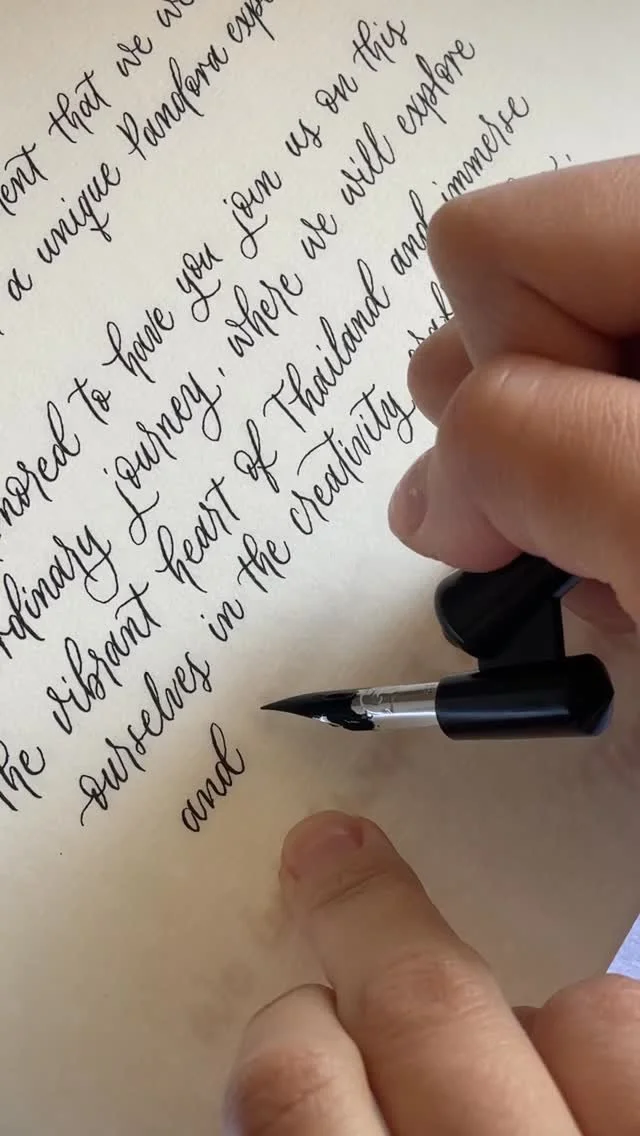 that we we
a unique Pandora exp
to have you join us on this
journey, where we will explore
the vibrant heart of Thailand and immerse
ourselves in the creativity
and